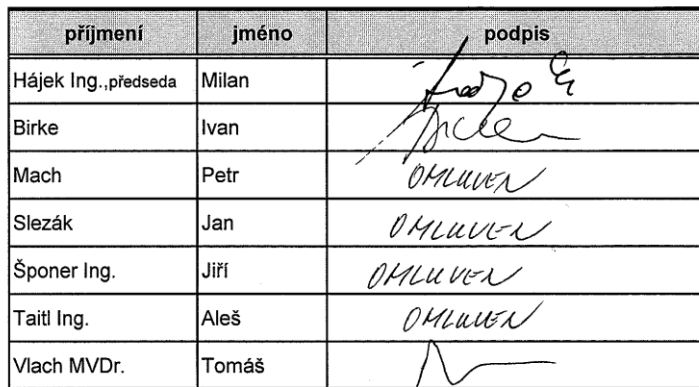 příjmení jméno podpis
Hájek Ing.,předseda Milan
Birke Ivan
Mach Petr OMLUVEN
Slezák Jan OMLUVEN
Šponer Ing. Jiří OMLUVEN
Taitl Ing. Aleš OMLUVEN
Vlach MVDr. Tomáš